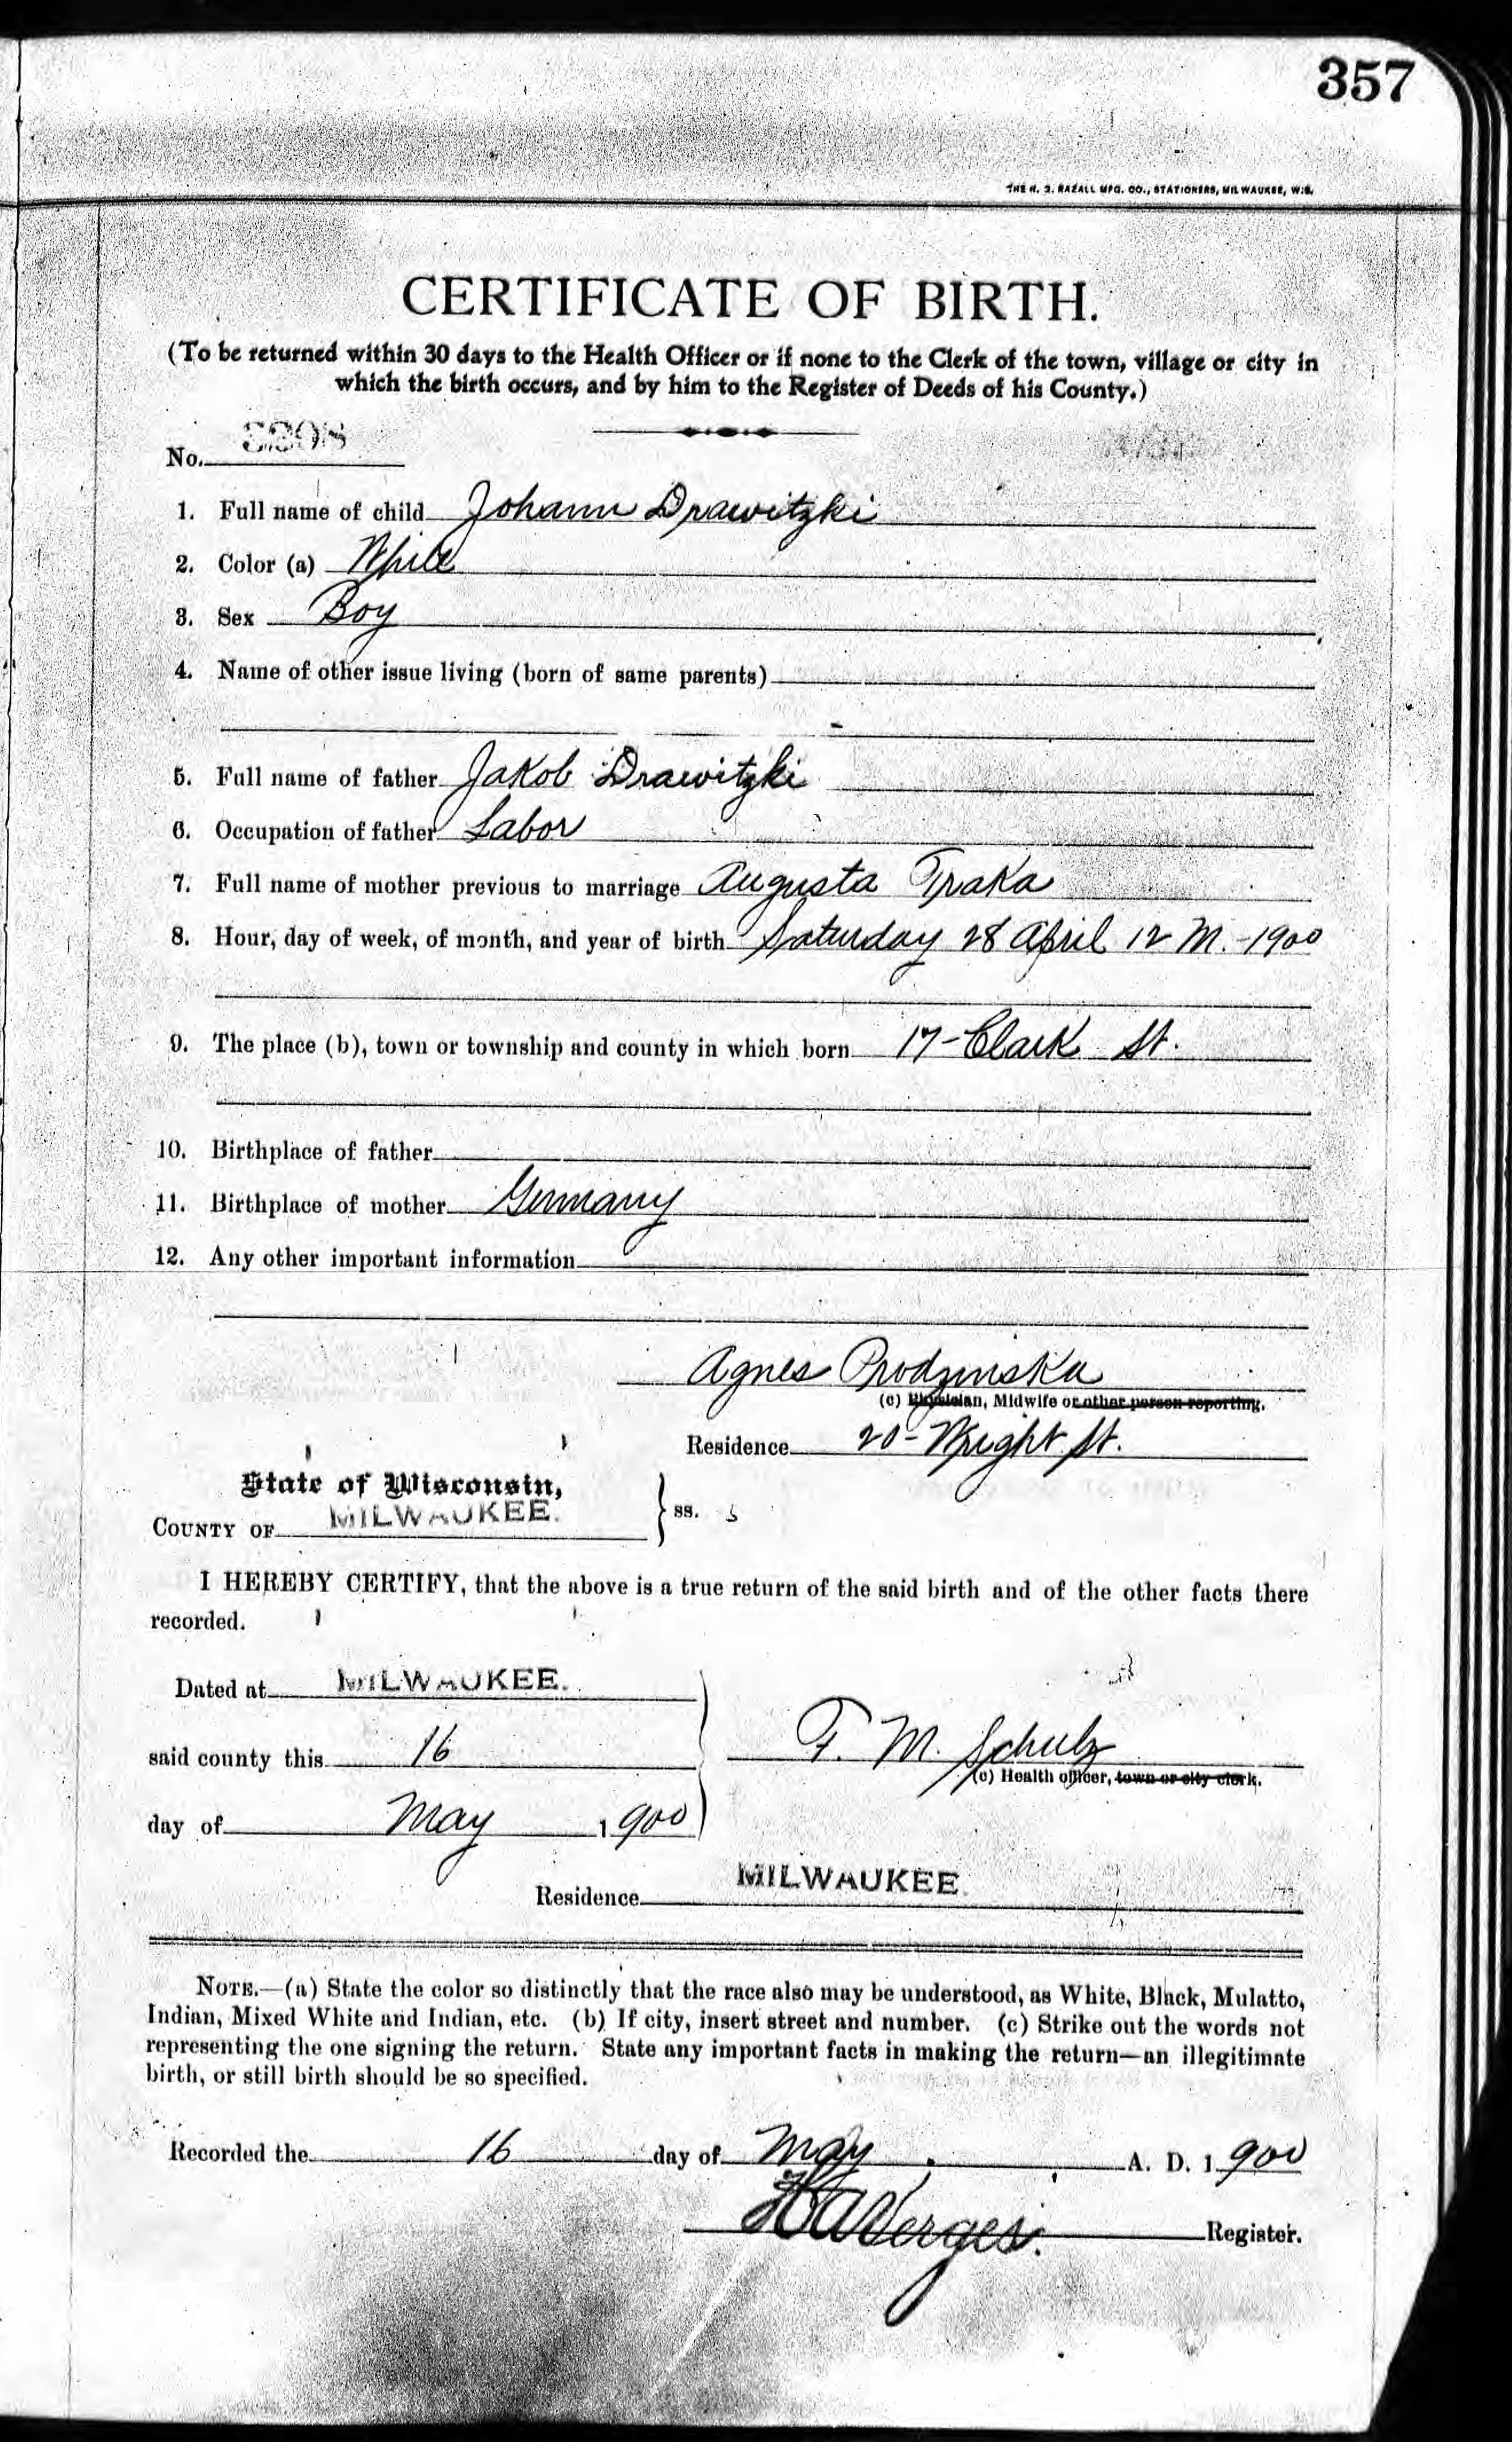 357
THE H. S. RAZALL MFG. CO., STATIONERS, MILWAUKEE, WIS.
CERTIFICATE OF BIRTH.
(To be returned within 30 days to the Health Officer or if none to the Clerk of the town, village or city in
which the birth occurs, and by him to the Register of Deeds of his County.)
No. 3398
1. Full name of child Johann Drawitzki
2. Color (a) White
3. Sex Boy
4. Name of other issue living (born of same parents)
5. Full name of father Jakob Drawitzki
6. Occupation of father Labor
7. Full name of mother previous to marriage Augusta Traka
8. Hour, day of week, of month, and year of birth Saturday 28 April 12 M. -1900
9. The place (b), town or township and county in which born 17-Clark St.
10. Birthplace of father
11. Birthplace of mother Germany
12. Any other important information
Agnes Prodzinska
(c) Physician, Midwife or other person reporting.
Residence 20-Wright St.
State of Wisconsin,
COUNTY OF MILWAUKEE. } ss.
I HEREBY CERTIFY, that the above is a true return of the said birth and of the other facts there
recorded.
Dated at MILWAUKEE.
said county this 16
F. M. Schulz
(c) Health officer, town or city clerk.
day of May 1900
Residence MILWAUKEE.
NOTE.—(a) State the color so distinctly that the race also may be understood, as White, Black, Mulatto,
Indian, Mixed White and Indian, etc. (b) If city, insert street and number. (c) Strike out the words not
representing the one signing the return. State any important facts in making the return—an illegitimate
birth, or still birth should be so specified.
Recorded the 16 day of May A. D. 1900
H A Verges. Register.